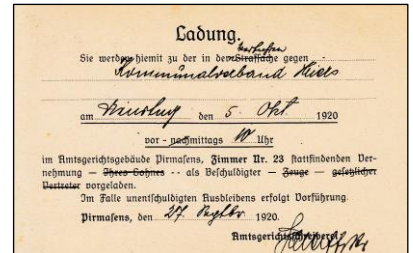 Ladung.
Sie werden hiemit zu der in der Strafsache gegen
Kommunalverband
am Dienstag den 5. Okt. 1920
vor - nachmittags 10 Uhr
im Amtsgerichtsgebäude Pirmasens, Zimmer Nr. 23 stattfindenden Ver-
nehmung — Ihres Sohnes -- als Beschuldigter — Zeuge — gesetzlicher
Vertreter vorgeladen.
Im Falle unentschuldigten Ausbleibens erfolgt Vorführung
Pirmasens, den 27. Septbr. 1920.
Amtsgerichtsschreiberei